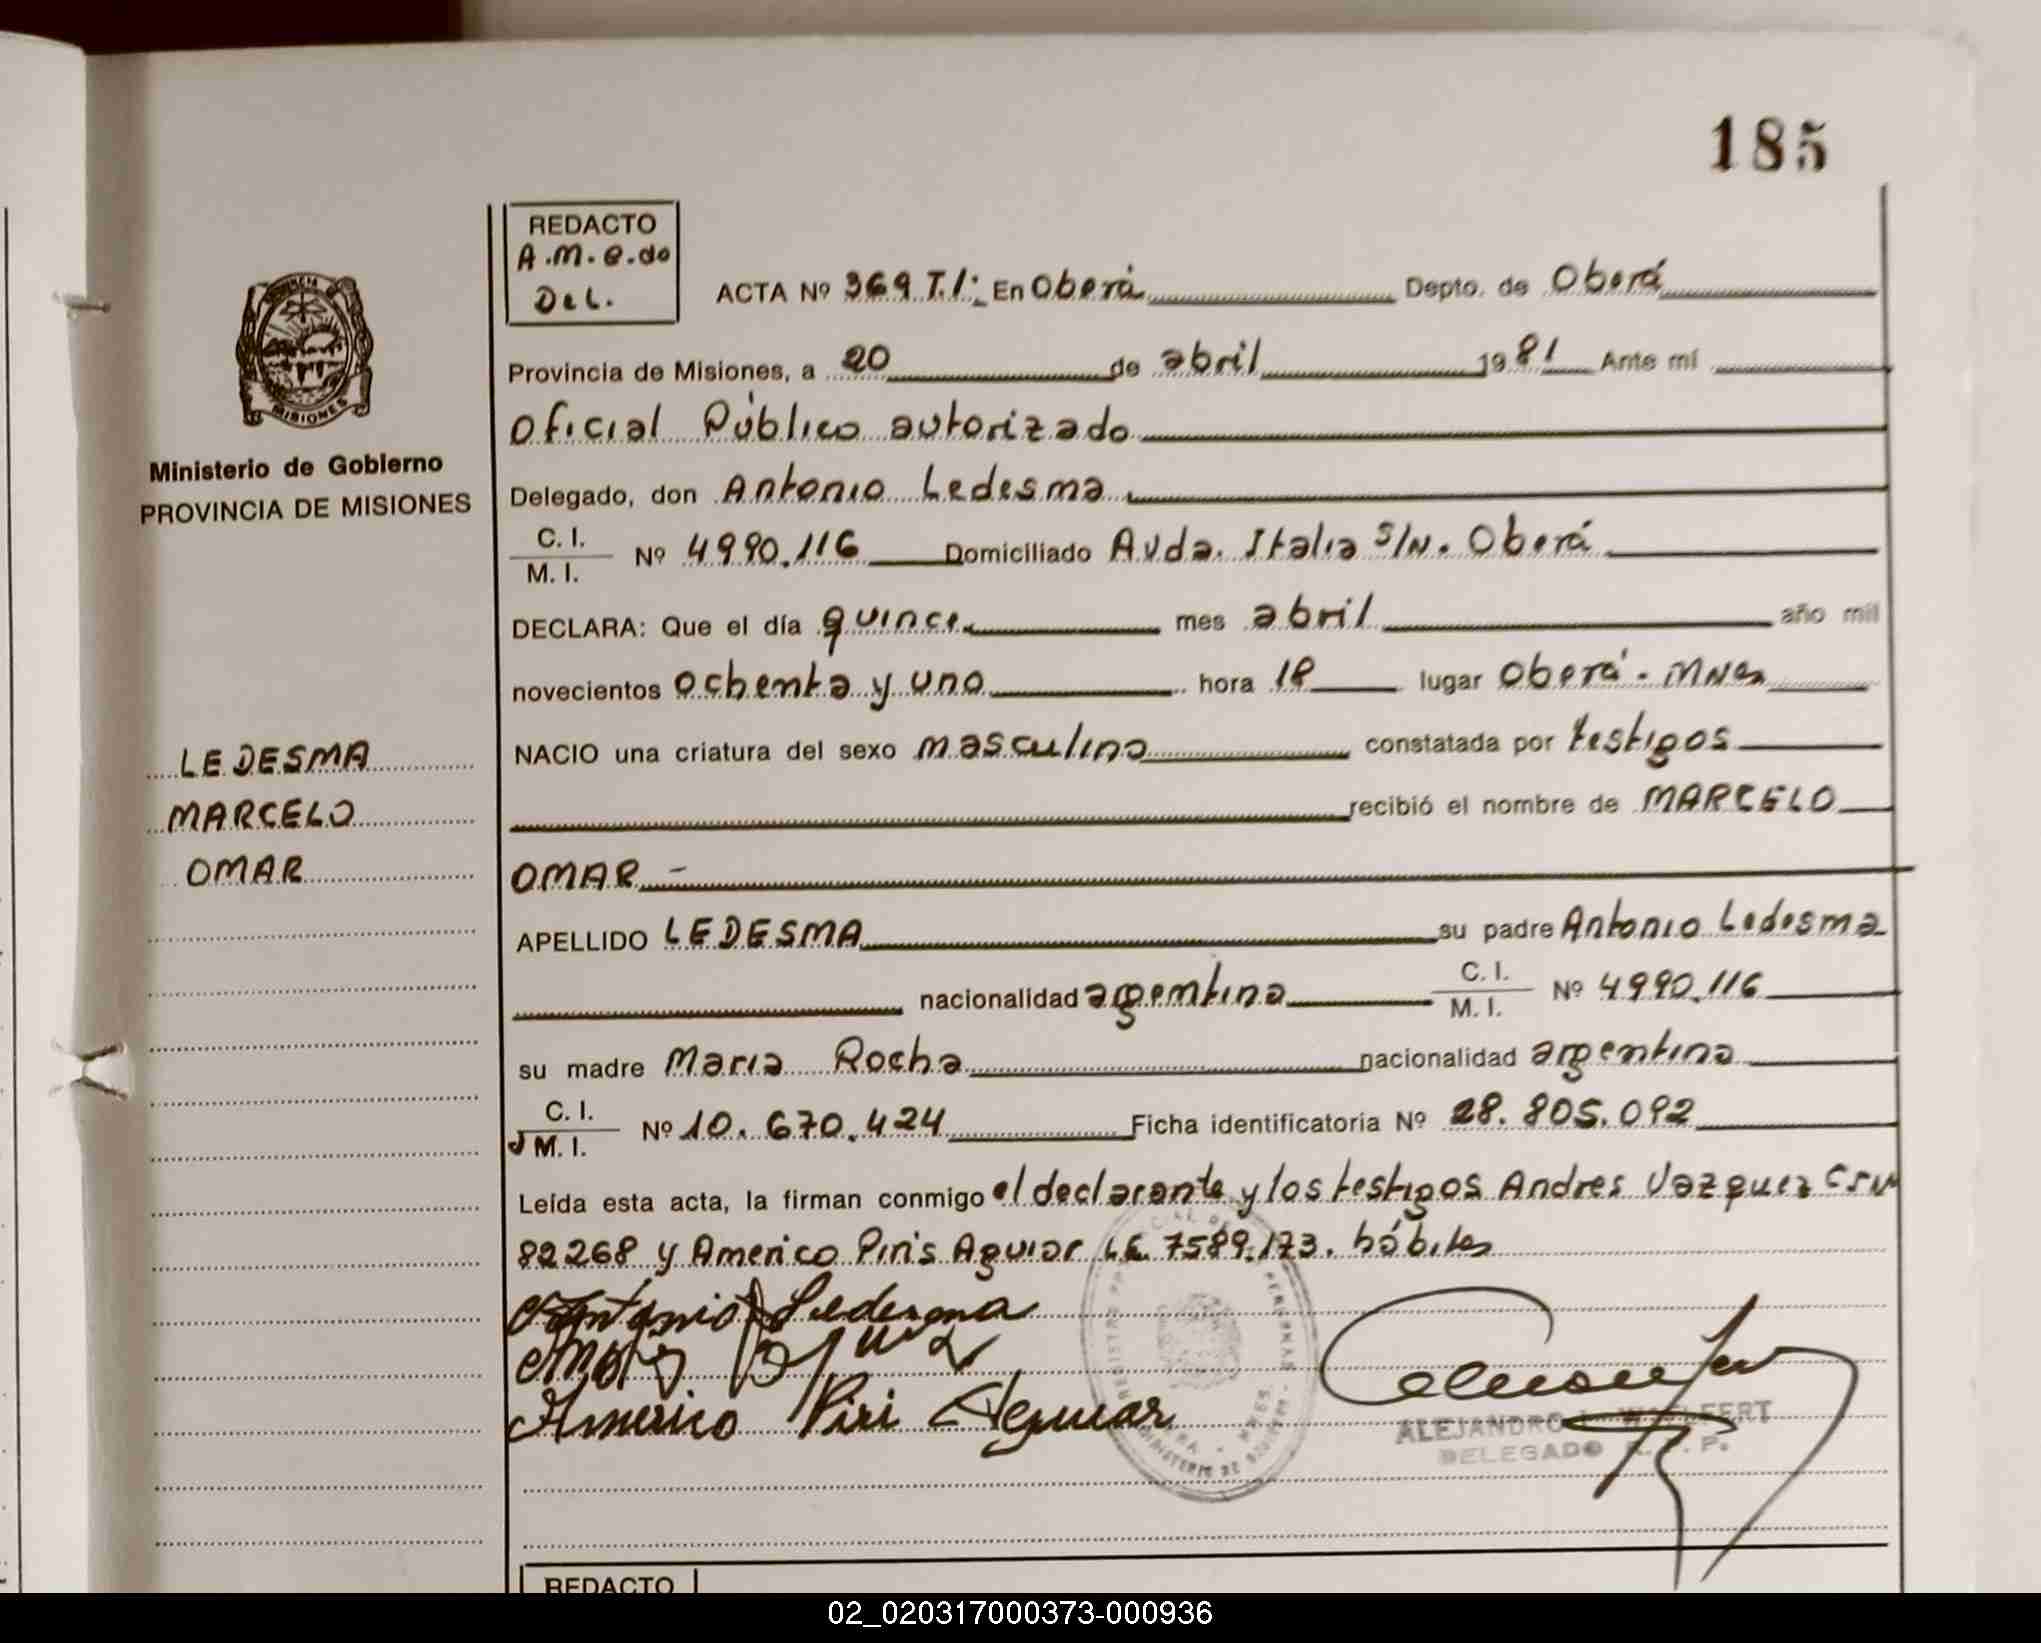 185
REDACTO
A.M.e.do
Del.
ACTA Nº 369 T.I: En Oberá Depto. de Oberá
Provincia de Misiones, a 20 de abril 1981 Ante mí
Oficial Público autorizado
Delegado, don Antonio Ledesma
C. I.
M. I. Nº 4990.116 Domiciliado Avda. Italia S/N. Oberá
DECLARA: Que el día quince mes abril año mil
novecientos ochenta y uno hora 18 lugar Oberá - MNes
NACIO una criatura del sexo masculino constatada por testigos
recibió el nombre de MARCELO
OMAR -
APELLIDO LEDESMA su padre Antonio Ledesma
nacionalidad argentina C. I.
M. I. Nº 4990.116
su madre Maria Rocha nacionalidad argentina
C. I.
M. I. Nº 10.670.424 Ficha identificatoria Nº 28.805.092
Leída esta acta, la firman conmigo el declarante y los testigos Andres Vazquez
82268 y Americo Piris Aguiar LE 7589.173. hábiles
Antonio Ledesma
Americo Piri Aguiar
ALEJANDRO
DELEGADO R. P. P.
MISIONES
Ministerio de Gobierno
PROVINCIA DE MISIONES
LEDESMA
MARCELO
OMAR
REDACTO
02_020317000373-000936